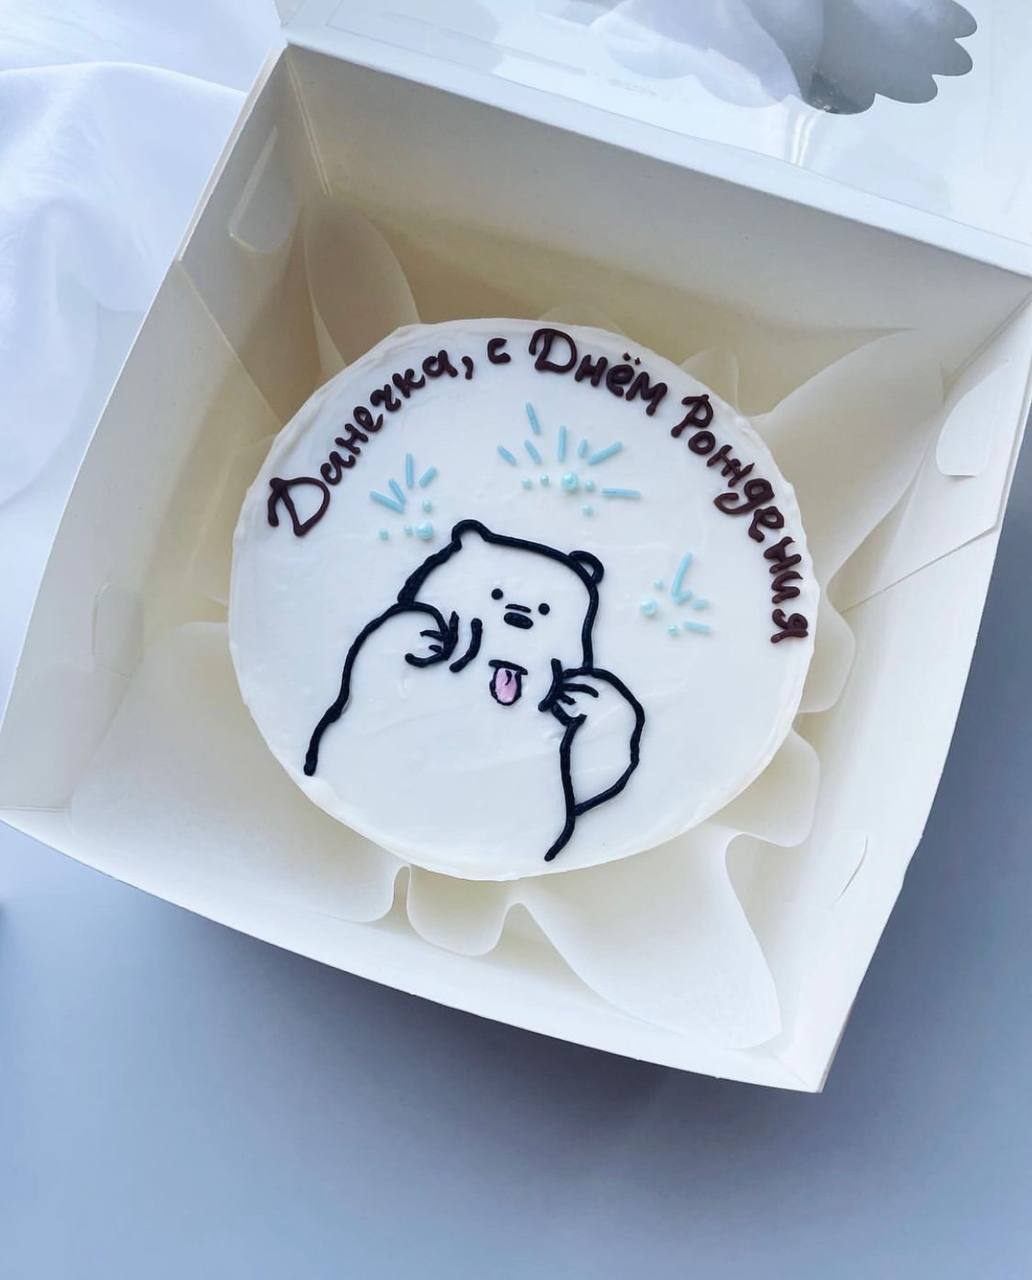 Данечка, с Днём Рождения